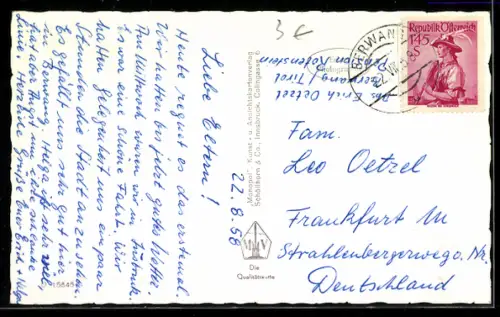 3 €
22.8.58
Liebe Eltern!
Heute regnet es das erstemal.
Wir hatten bis jetzt gutes Wetter.
Am Mittwoch waren wir in Innsbruck.
Es war eine schöne Fahrt. Wir
hatten Gelegenheit uns ein paar
Stunden die Stadt anzusehen.
Es gefällt uns sehr gut hier
in Berwang. Helga
Herzliche Grüße Euer Erich + Helga
15645
"Monopol" Kunst- u. Ansichtskartenverlag
Schöllhorn & Co., Innsbruck, Colingasse
MKV
Die
Qualitätskarte
Abs. Erich Oetzel
Berwang/Tirol
Pension Rotenstein
BERWANG
Republik Österreich
1.45
S
Fam.
Leo Oetzel
Frankfurt M
Strahlenbergerweg, Nr.
Deutschland